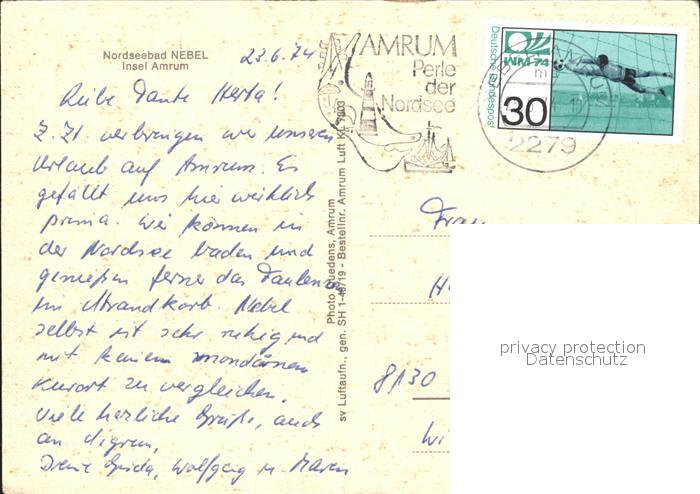 Nordseebad NEBEL
Insel Amrum
23.6.74
Liebe Tante Herta!
Z. Zt. verbringen wir unseren
Urlaub auf Amrum. Es
gefällt uns hier wirklich
prima. Wir können in
der Nordsee baden und
genießen ferner das Faulenzen
im Strandkorb. Nebel
selbst ist sehr ruhig und
mit keinem mondänen
Kurort zu vergleichen.
Viele herzliche Grüße, auch
an
Deine Wolfgang u. Maren
Photo Quedens, Amrum
sv Luftaufn., gen. SH 1-49/19 - Bestellnr. Amrum Luft KL 7803
AMRUM
Perle
der
Nordsee
2279
Deutsche Bundespost
WM 74
30
Frau
H
8130
privacy protection
Datenschutz